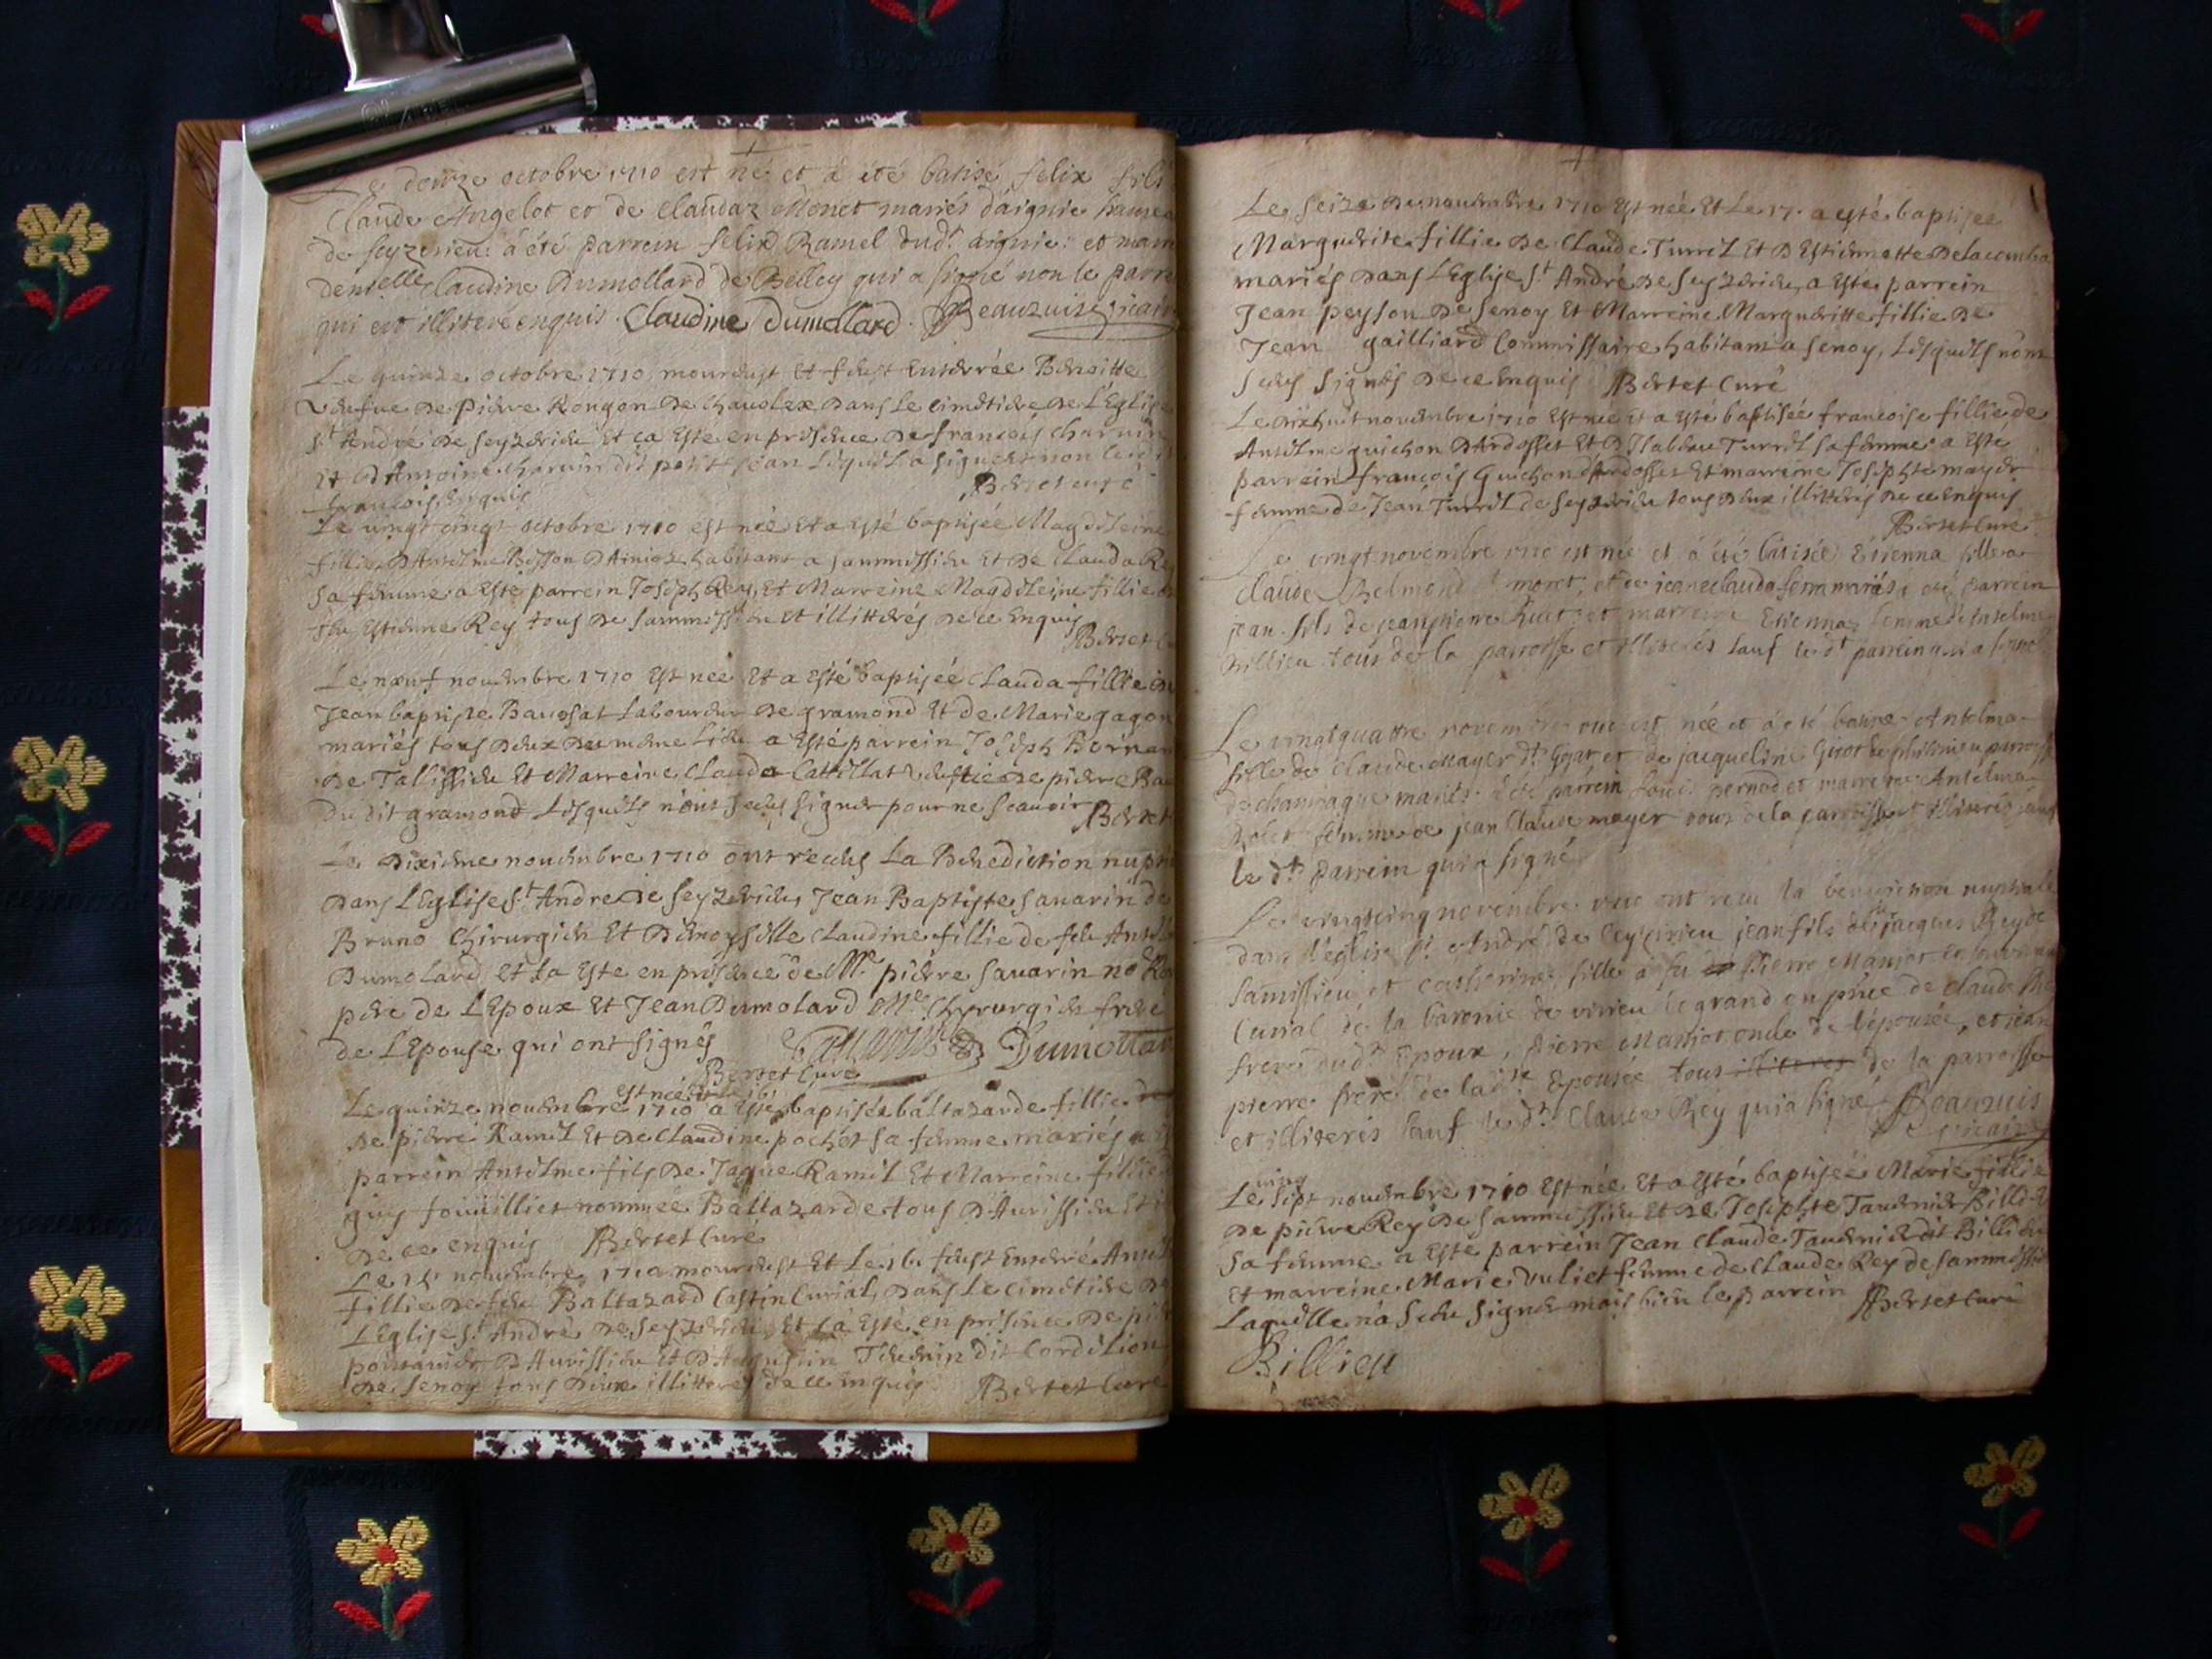 Le douze octobre 1710 est né et à été batisé felix fils
Claude Angelot et de Claudaz Monet mariés d'aignie hamea
de seyzerieu à été parrein felix Ramel dud.t aignie et marr
demlle Claudine Dumollard de Belley qui a signé non le parre
qui est illiteré enquis. Claudine Dumollard. Beauzuis vicair
Le quinze octobre 1710 mourust et fust enterrée Benoitte
veufue de pierre Rougon de Chauolex dans le cimetiere de L'Eglise
S.t André de seyzerieu et ça esté en presence de francois charuin
et D'Antoine charuin dit petit Jean lequel a signer et non le dit
francois enquis Berset curé
Le vingt cinqt octobre 1710 est née et a esté baptisée Magdeleine
fillie D'Anselme Bisson D'Ainioz habitant a sammissieu et de Clauda Re
sa femme a esté parrein Joseph Rey, et Marreine Magdeleine fillie de
feu Estienne Rey tous de sammissieu et illitterés de ce enquis
Berset Cu
Le nœuf nouembre 1710 est née et a esté baptisée Clauda fillie de
Jean baptiste Baussat Laboureur de gramond et de Marie gagon
mariés tous deux de meme lieu a esté parrein Joseph Bornar
de Tallissieu et Marreine Clauda Cattillat de pierre Bau
du dit gramond Lesquels n'ont sceus signer pour ne scauoir Berset
Le Dixieme nouembre 1710 ont receus La Benediction nupti
dans L'Eglise S.t Andre de seyzerieu, Jean Baptiste sauarin de
Bruno Chirurgien et Demoyselle Claudine fillie de feu Ansel
Dumolard et ça este en presence de M.re pierre sauarin no Roy
pere de L'Epoux et Jean Dumolard M.e Chyrurgien frere
de L'Epouse qui ont signés Savarin Dumollar
Berset Curé
est née et le 16
Le quinze nouembre 1710 a esté baptisée baltazarde fillie de
de pierre Ramel et de Claudine pochet sa femme mariés a es
parrein Anselme fils de Jaque Ramel et Marreine fillie
guy fouillet nommée Baltazarde tous D'Aurissieu et i
de ce enquis Berset Curé
Le 15 nouembre 1710 mourust et Le 16 fust enterré Ansel
fillie de feu Baltazard Castin Curial, dans Le cimetiere de
L'Eglise S.t André de seyzerieu et ça esté en presence de pier
D'Aurissieu et D'Augustin dit Cordelion
de senoy tous deux illitteres de ce enquis Berset Curé
Le seize de nouembre 1710 est née et Le 17 a esté baptisée
Marguerite fillie de Claude Turrel et D'Estiennette Delacomba
mariés dans L'Eglise S.t André de seyzerieu, a esté parrein
Jean peyson de senoy et Marreine Margueritte fillie de
Jean gailliard Commissaire habitant a senoy, Lesquels n'ont
sceus signés de ce enquis Berset Curé
Le dixhuit nouembre 1710 est née et a esté baptisée francoise fillie de
Anselme guichon D'Ardosset et D'Isabeau Turrel sa femme a esté
parrein francois Guichon d'Ardosset et marreine Josephte mayer
femme de Jean Turrel de seyzerieu tous deux illitterés de ce enquis
Berset Curé
Le vingt novembre 1710 est née et à été batisée Etienna fille a
Claude Thelmond d.t moret, et de jeane clauda ferra mariés, a été parrein
jean fils de jeanpierre huet et marreine Etiennaz femme d'Anselme
Billieu tous de la parroisse et illiterés sauf le d.t parrein qui a signé
Le vingtquattre novembre 1710 est née et à été batisée Antelma
fille de Claude mayer d.t Gojat et de jacqueline Girot de philinieu parroisse
de champagne mariés. a été parrein Louis pernod et marreine Antelma
Rolet femme de jean Claude mayer tous de la parroisse et illiterés sauf
le d.t parrein qui a signé
Le vingtcinq novembre 1710 ont receu la benediction nuptiale
dans l'église S.t André de ceyzirieu jean fils de jacques Rey de
samissieu et catherine fille a fu Pierre Manjot
Curial de la baronie de virieu le grand en pnce de Claude Rey
frere dud.t Epoux, Pierre Manjot oncle de l'épousée, et jean
pierre frere de lad.te Epousée tous illiteres de la parroisse
et illiterés sauf led.t Claude Rey qui a signé Beauzuis
vicaire
vingt
Le sept nouembre 1710 est née et a esté baptisée Marie fillie
de pierre Rey de sammissieu et de Josephte Tauernier Billieu
sa femme a esté parrein Jean Claude Tauernier dit Billieu
et marreine Marie Vuliet femme de Claude Rey de sammissieu
Laquelle n'a sceu signer mais bien le parrein Berset Curé
Billieu